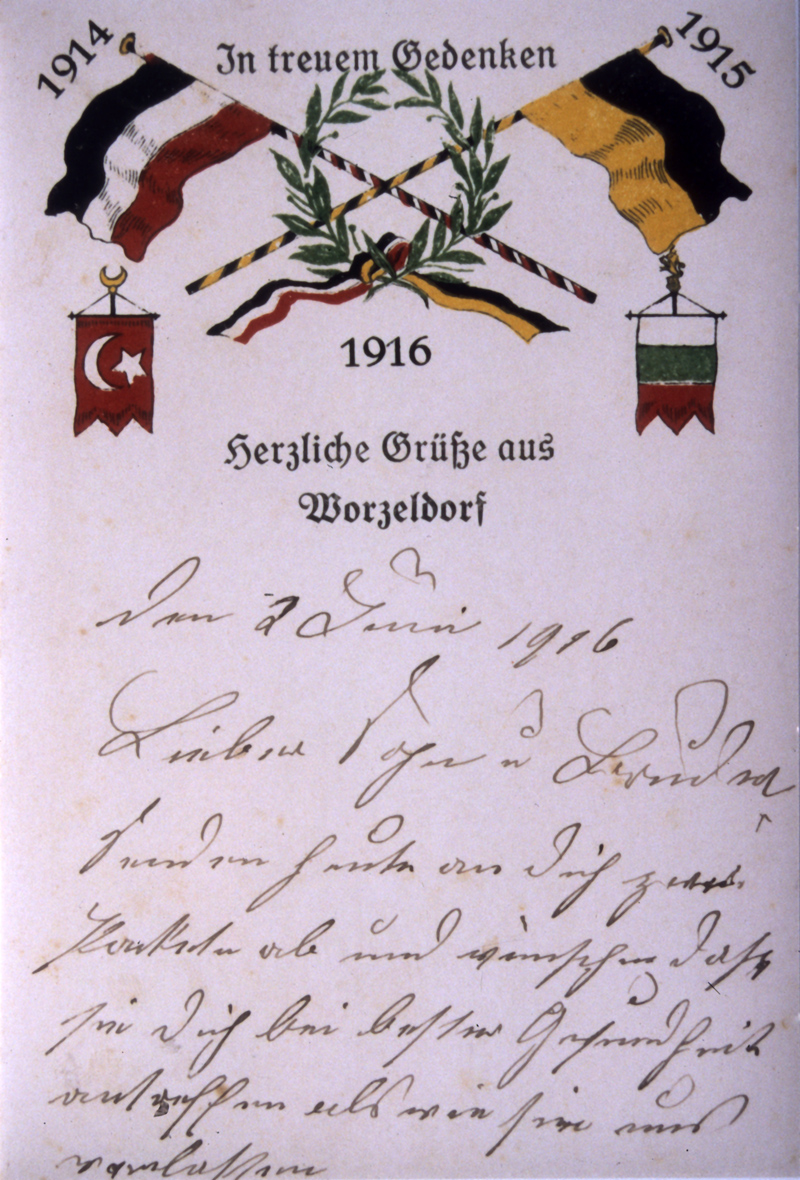 1914
In treuem Gedenken
1915
1916
Herzliche Grüße aus
Worzeldorf
den 2 Juni 1916
Lieber Sohn u Bruder
Senden heute an dich zwei
Packete ab und wünschen daß
sie dich bei bester Gesundheit
antreffen als wie sie uns
verlassen